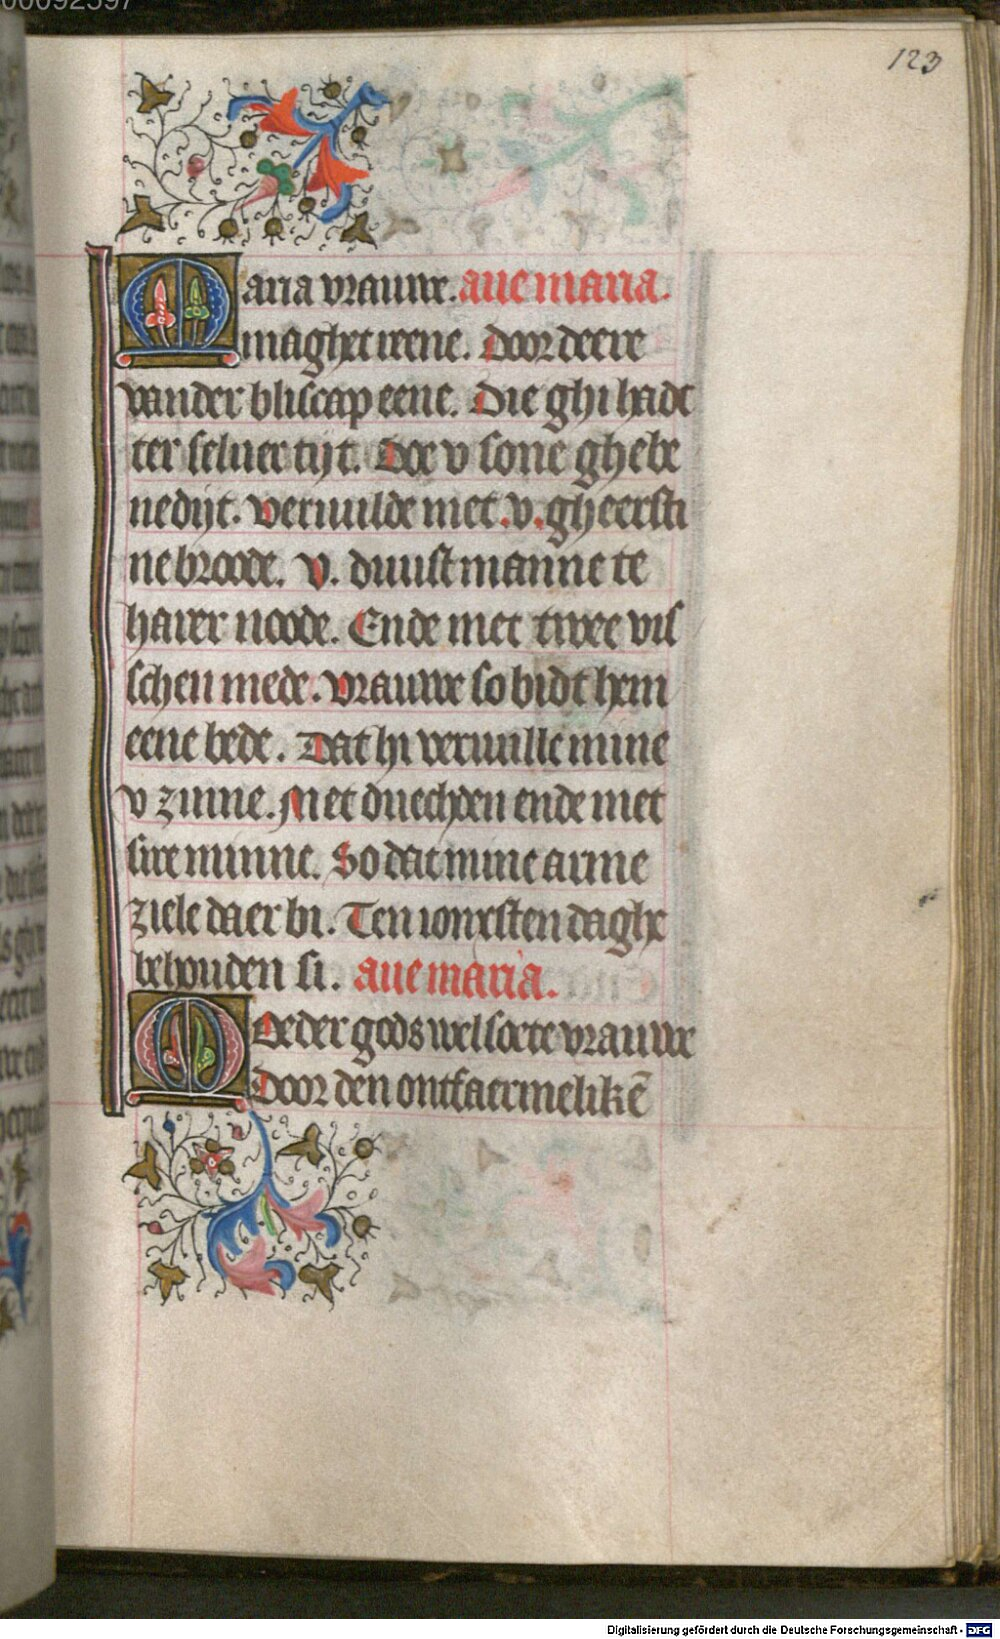 123
Maria vrauwe. aue maria.
maghet reene. Door deere
vander bliscap eene. Die ghi hadt
ter seluer tijt. Doe v sone ghebe
nedijt. Veruulde met .v. gheersti
ne broode. V. duust manne te
harer noode. Ende met twee vis
schen mede. Vrauwe so bidt hem
eene bede. Dat hi veruulle mine
v zinne. Met duechden ende met
sire minne. So dat mine arme
ziele daer bi. Ten ioncsten daghe
behouden si. aue maria.
Moeder gods wel soete vrauwe
Door den ontfaermelikē
Digitalisierung gefördert durch die Deutsche Forschungsgemeinschaft - DFG